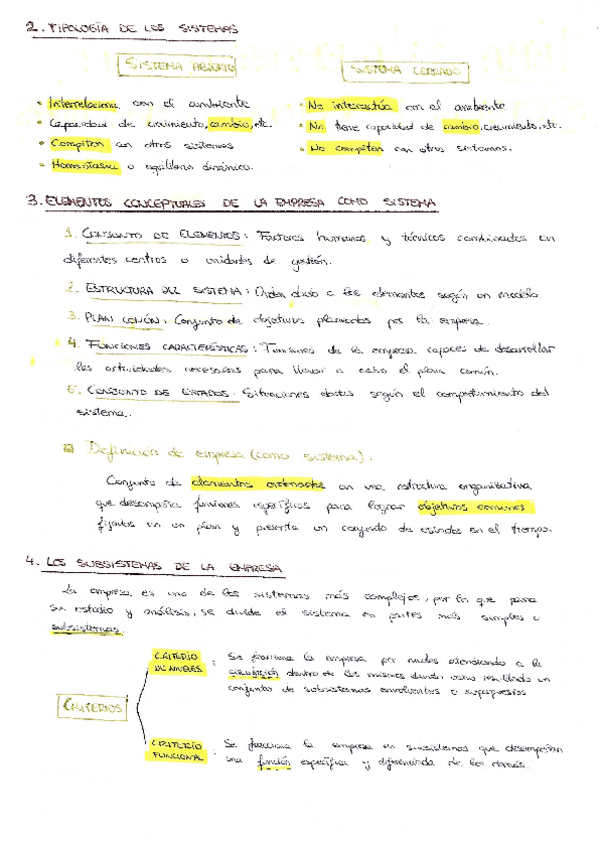 2. TIPOLOGÍA DE LOS SISTEMAS
SISTEMA ABIERTO
SISTEMA CERRADO
• Interrelaciona con el ambiente
• No interactúa con el ambiente
• Capacidad de crecimiento, cambio, etc.
• No tiene capacidad de cambio, crecimiento, etc.
• Compiten con otros sistemas
• No compiten con otros sistemas.
• Homeostasia o equilibrio dinámico.
3. ELEMENTOS CONCEPTUALES DE LA EMPRESA COMO SISTEMA
1. CONJUNTO DE ELEMENTOS: Factores humanos y técnicos combinados en
diferentes centros o unidades de gestión.
2. ESTRUCTURA DEL SISTEMA: Orden dado a los elementos según un modelo.
3. PLAN COMÚN: Conjunto de objetivos planeados por la empresa.
4. FUNCIONES CARACTERÍSTICAS: Funciones de la empresa capaces de desarrollar
las actividades necesarias para llevar a cabo el plan común.
5. CONJUNTO DE ESTADOS: Situaciones dadas según el comportamiento del
sistema.
Definición de empresa (como sistema).
Conjunto de elementos ordenados en una estructura organizativa
que desempeña funciones específicas para lograr objetivos comunes
fijados en un plan y presenta un conjunto de estados en el tiempo.
4. LOS SUBSISTEMAS DE LA EMPRESA
La empresa es uno de los sistemas más complejos, por lo que para
su estudio y análisis, se divide el sistema en partes más simples o
subsistemas.
CRITERIO
DE NIVELES
: Se fracciona la empresa por niveles atendiendo a la
dentro de los mismos dando como resultado un
conjunto de subsistemas envolventes o superpuestos
CRITERIOS
CRITERIO
FUNCIONAL
: Se fracciona la empresa en subsistemas que desempeñan
una función específica y diferenciada de los demás.